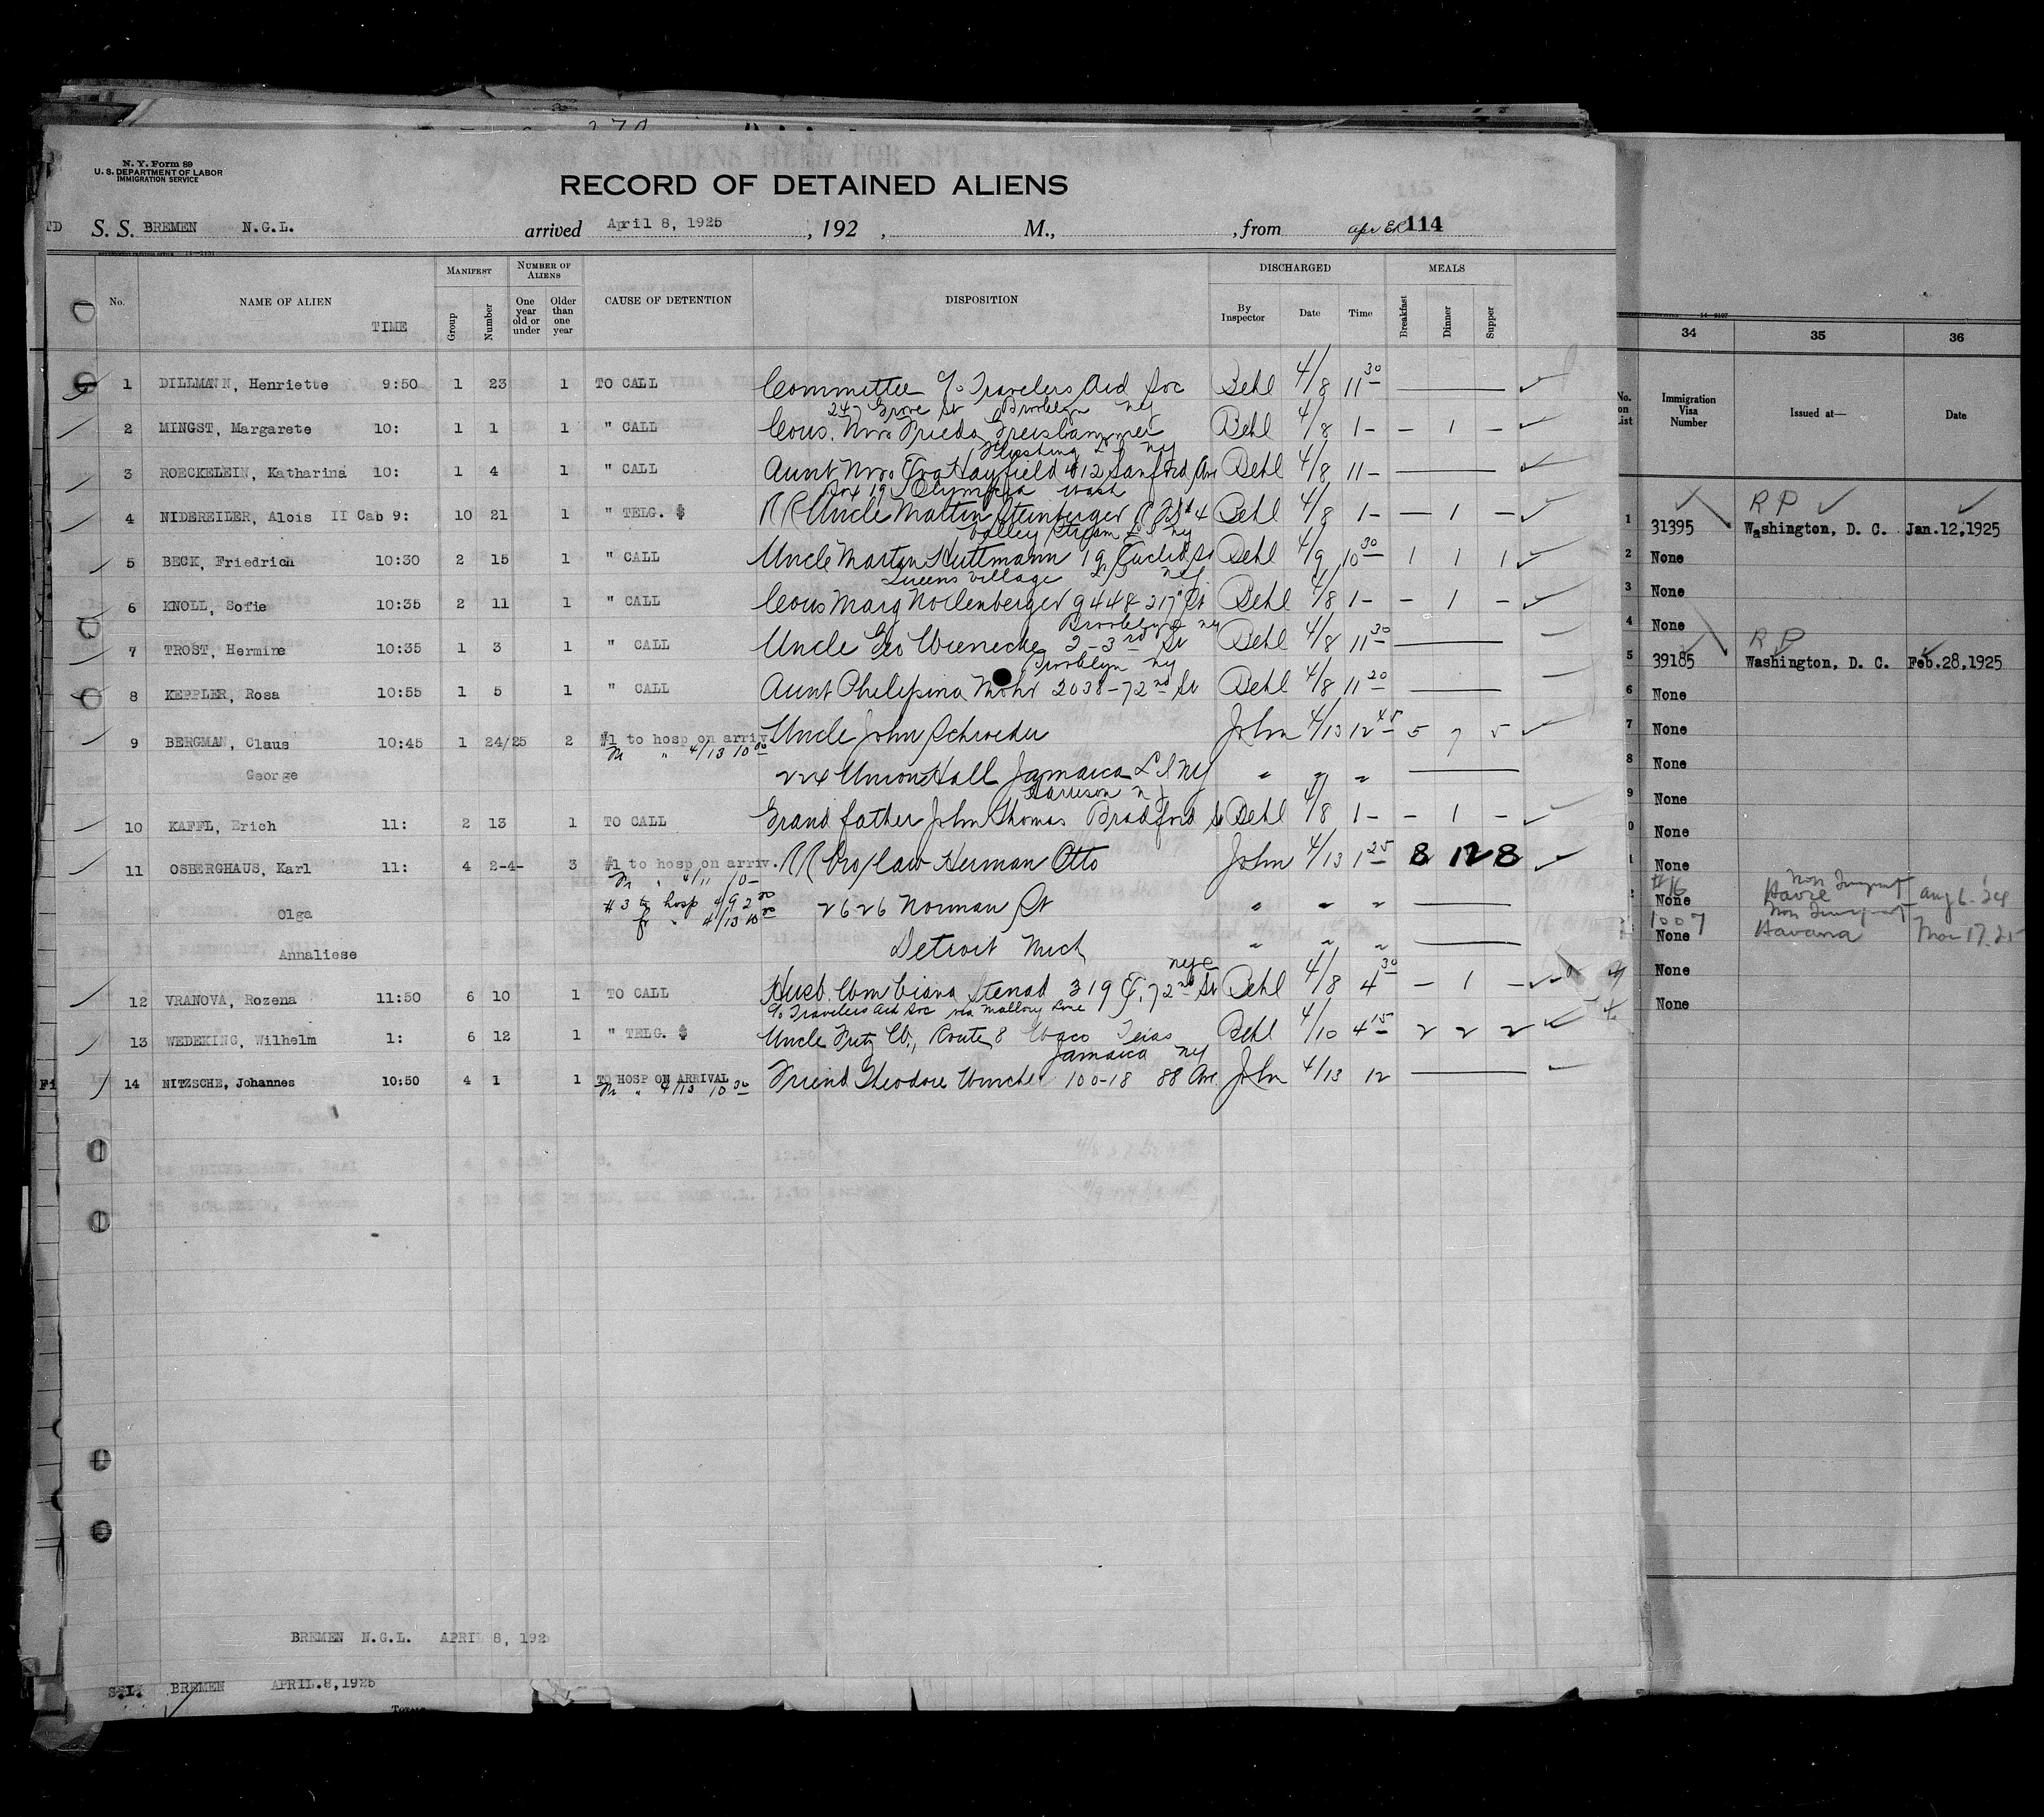 N. Y. Form 89
U. S. DEPARTMENT OF LABOR
IMMIGRATION SERVICE
RECORD OF DETAINED ALIENS
S. S. BREMEN N.G.L. arrived April 8, 1925, 192 , M., , from 114
No. NAME OF ALIEN TIME MANIFEST Group Number NUMBER OF ALIENS One year old or under Older than one year CAUSE OF DETENTION DISPOSITION DISCHARGED By Inspector Date Time MEALS Breakfast Dinner Supper
1 DILLMANN, Henriette 9:50 1 23 1 TO CALL Committee c/o Travelers Aid Soc Behl 4/8 11 30
247 Grove St Brooklyn NY
2 MINGST, Margarete 10: 1 1 1 " CALL Cous. Mrs Frieda Behl 4/8 1 - - 1 -
Flushing L I NY
3 ROECKELEIN, Katharina 10: 1 4 1 " CALL Aunt Mrs Eva Hayfield 412 Sanford Ave Behl 4/8 11 -
Box 19 Olympia Wash
4 NIDEREILER, Alois II Cab 9: 10 21 1 " TELG. $ RR Uncle Martin Steinberger R F D # 4 Behl 4/8 1 - - 1 -
Valley Stream L I NY
5 BECK, Friedrich 10:30 2 15 1 " CALL Uncle Martan Huttmann 19 Euclid St Behl 4/9 10 30 1 1 1
Queens Village L I NY
6 KNOLL, Sofie 10:35 2 11 1 " CALL Cous Marg Nollenberger 9448 217" St Behl 4/8 1 - - 1 -
Brooklyn NY
7 TROST, Hermine 10:35 1 3 1 " CALL Uncle Geo Wienecke 2 - 3rd St Behl 4/8 11 30
Brooklyn NY
8 KEPPLER, Rosa 10:55 1 5 1 " CALL Aunt Philipina Mohr 2038 - 72nd St Behl 4/8 11 20
9 BERGMAN, Claus 10:45 1 24/25 2 #1 to hosp on arriv. Uncle John Schroeder John 4/13 12 45 5 7 5
Fr " 4/13 10 00
George 224 Union Hall Jamaica L I NY " " "
Harrison N J
10 KAFFL, Erich 11: 2 13 1 TO CALL Grand father John Thomas Bradford St Behl 4/8 1 - - 1 -
11 OSBERGHAUS, Karl 11: 4 2-4- 3 #1 to hosp on arriv. RR Bro/law Herman Otto John 4/13 1 25 8 12 8
Fr " 4/11 10 -
#3 to hosp 4/9 2 00
Olga fr " 4/13 10 00 2626 Norman St " " "
Annaliese Detroit Mich " " "
NYC
12 VRANOVA, Rozena 11:50 6 10 1 TO CALL Husb. 319 E. 72nd St Behl 4/8 4 30 - 1 -
c/o Travelers Aid Soc via Mallory Line
13 WEDEKING, Wilhelm 1: 6 12 1 " TELG. $ Uncle Fritz W., Route 8 Waco Texas Behl 4/10 4 15 2 2 2
Jamaica NY
14 NITZSCHE, Johannes 10:50 4 1 1 TO HOSP ON ARRIVAL Friend Theodore 100-18 88 Ave John 4/13 12
Fr " 4/13 10 30
BREMEN N.G.L. APRIL 8, 192
S.I. BREMEN APRIL.8,1925
34 35 36
No. on List Immigration Visa Number Issued at— Date
R P
1 31395 Washington, D. C. Jan.12,1925
2 None
3 None
4 None
R P
5 39185 Washington, D. C. Feb.28,1925
6 None
7 None
8 None
9 None
0 None
1 None
#16 Non Immigrant
2 None Havre Aug 6. 24
1007 Non Immigrant
None Havana Mar 17. 25
None
None